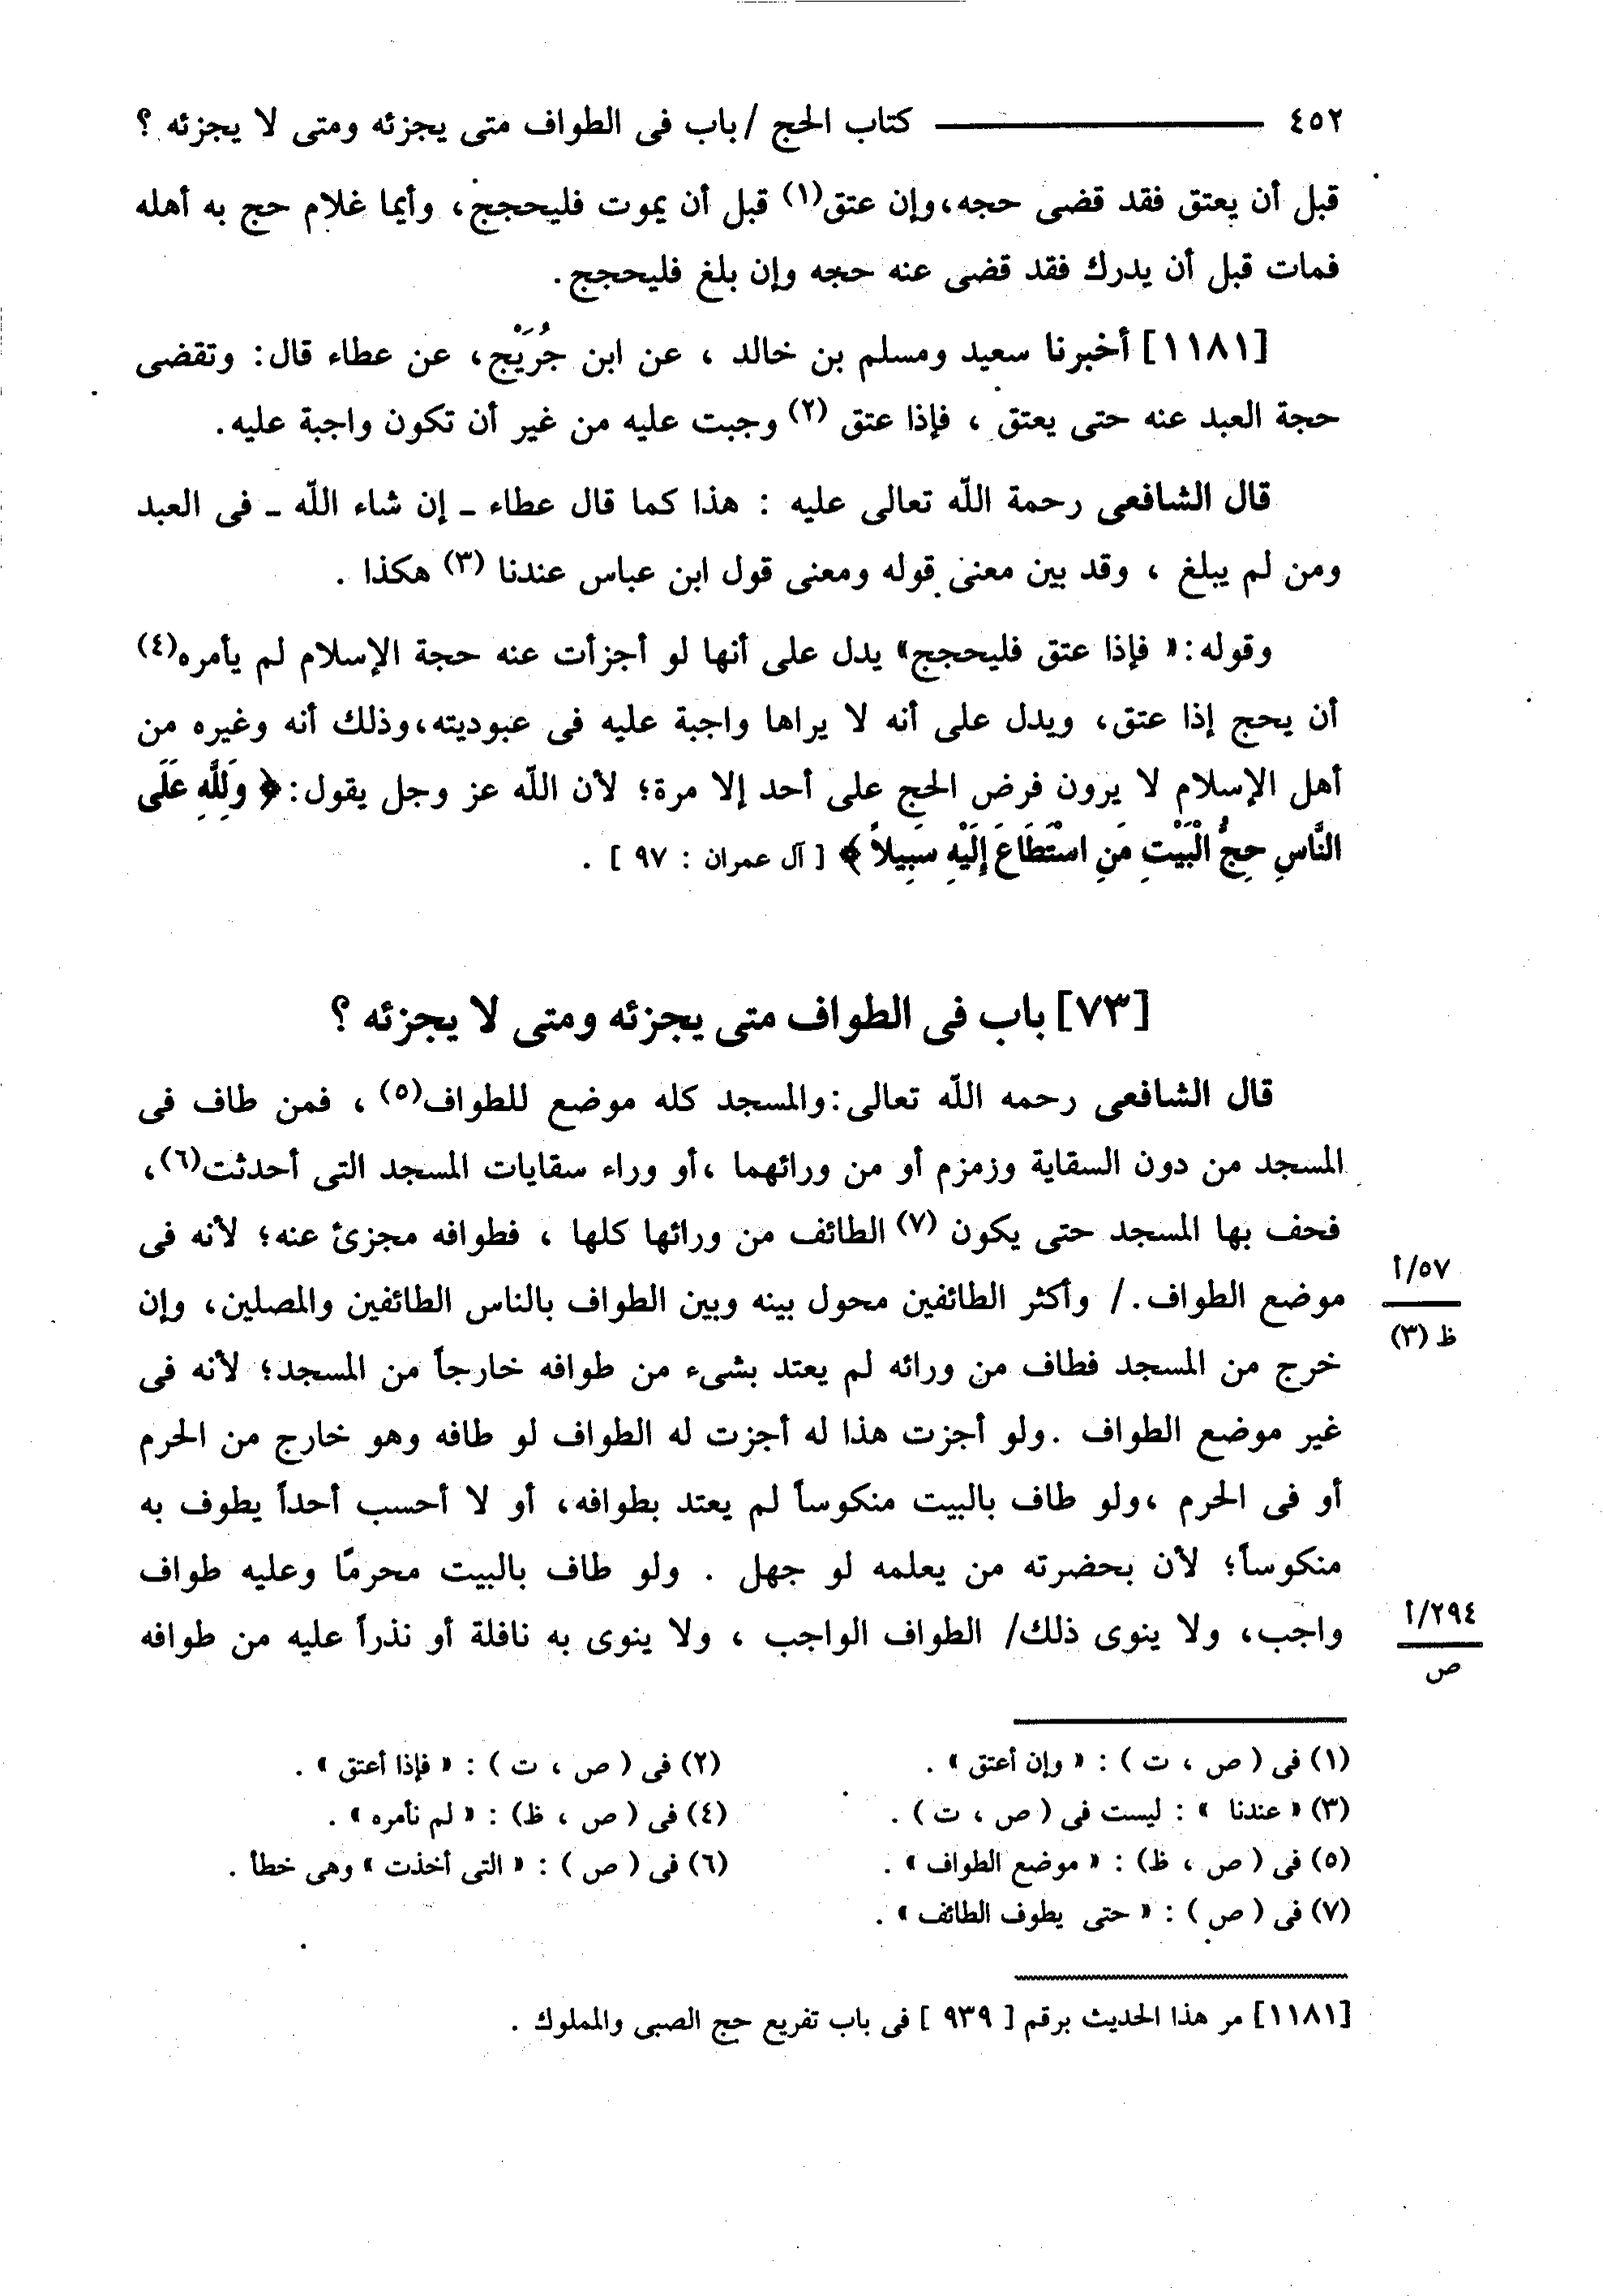 ٤٥٢ كتاب الحج / باب فى الطواف متى يجزئه ومتى لا يجزئه ؟
قبل أن يعتق فقد قضى حجه، وإن عتق(١) قبل أن يموت فليحجج، وأيما غلام حج به أهله
فمات قبل أن يدرك فقد قضى عنه حجه وإن بلغ فليحجج.
[١١٨١] أخبرنا سعيد ومسلم بن خالد ، عن ابن جُرَيْج، عن عطاء قال: وتقضى
حجة العبد عنه حتى يعتق ، فإذا عتق (٢) وجبت عليه من غير أن تكون واجبة عليه.
قال الشافعى رحمة اللّه تعالى عليه : هذا كما قال عطاء ـ إن شاء اللّه ـ فى العبد
ومن لم يبلغ ، وقد بين معنى قوله ومعنى قول ابن عباس عندنا (٣) هكذا .
وقوله: « فإذا عتق فليحجج» يدل على أنها لو أجزأت عنه حجة الإسلام لم يأمره(٤)
أن يحج إذا عتق، ويدل على أنه لا يراها واجبة عليه فى عبوديته، وذلك أنه وغيره من
أهل الإسلام لا يرون فرض الحج على أحد إلا مرة؛ لأن اللّه عز وجل يقول: ﴿ وَلِلَّهِ عَلَى
النَّاسِ حِجُّ الْبَيْتِ مَنِ اسْتَطَاعَ إِلَيْهِ سَبِيلاً ﴾ [ آل عمران : ٩٧ ] .
[٧٣] باب فى الطواف متى يجزئه ومتى لا يجزئه ؟
قال الشافعى رحمه اللّه تعالى: والمسجد كله موضع للطواف(٥) ، فمن طاف فى
المسجد من دون السقاية وزمزم أو من ورائهما ،أو وراء سقايات المسجد التى أحدثت(٦)،
فحف بها المسجد حتى يكون (٧) الطائف من ورائها كلها ، فطوافه مجزئ عنه؛ لأنه فى
موضع الطواف. / وأكثر الطائفين محول بينه وبين الطواف بالناس الطائفين والمصلين، وإن
٥٧/أ
ظ (٣)
خرج من المسجد فطاف من ورائه لم يعتد بشىء من طوافه خارجاً من المسجد؛ لأنه فى
غير موضع الطواف .ولو أجزت هذا له أجزت له الطواف لو طافه وهو خارج من الحرم
أو فى الحرم ،ولو طاف بالبيت منكوساً لم يعتد بطوافه، أو لا أحسب أحداً يطوف به
منكوساً؛ لأن بحضرته من يعلمه لو جهل . ولو طاف بالبيت محرمًا وعليه طواف
واجب، ولا ينوى ذلك/ الطواف الواجب ، ولا ينوى به نافلة أو نذراً عليه من طوافه
٢٩٤/أ
ص
(١) فى ( ص ، ت ) : « وإن أعتق » . (٢) فى ( ص ، ت ) : « فإذا أعتق » .
(٣) « عندنا » : ليست فى ( ص ، ت ) . (٤) فى ( ص ، ظ) : « لم نأمره » .
(٥) فى ( ص ، ظ) : « موضع الطواف » . (٦) فى ( ص ) : « التى أخذت » وهى خطأ .
(٧) فى ( ص ) : « حتى يطوف الطائف » .
[١١٨١] مر هذا الحديث برقم [ ٩٣٩ ] فى باب تفريع حج الصبى والمملوك .